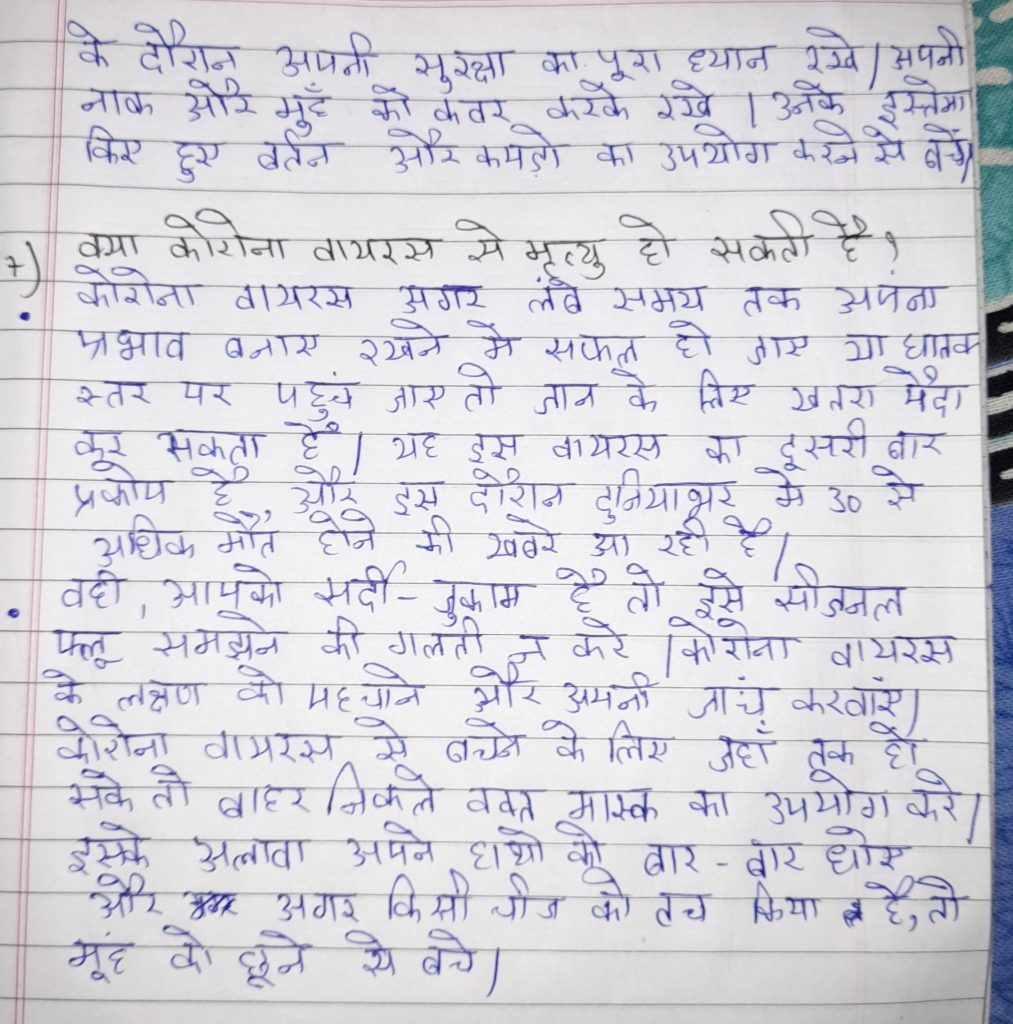 के दौरान अपनी सुरक्षा का पूरा ध्यान रखे। अपनी
नाक और मुहँ को कवर करके रखे। उनके इस्तेमा
किए हुए बर्तन और कपड़ो का उपयोग करने से बचें।
7) क्या कोरोना वायरस से मृत्यु हो सकती है?
• कोरोना वायरस अगर लंबे समय तक अपना
प्रभाव बनाए रखने मे सफल हो जाए या घातक
स्तर पर पहुंच जाए तो जान के लिए खतरा पैदा
कर सकता है। यह इस वायरस का दूसरी बार
प्रकोप है, और इस दौरान दुनियाभर मे 30 से
अधिक मौत होने की खबरे आ रही है।
• वही, आपको सर्दी-जुकाम है तो इसे सीजनल
फ्लू समझने की गलती न करे। कोरोना वायरस
के लक्षण को पहचाने और अपनी जांच करवाएं।
कोरोना वायरस से बचने के लिए जहाँ तक हो
सके तो बाहर निकले वक्त मास्क का उपयोग करे।
इसके अलावा अपने हाथो को बार-बार धोए
और अगर किसी चीज को टच किया है, तो
मूंह को छूने से बचे।